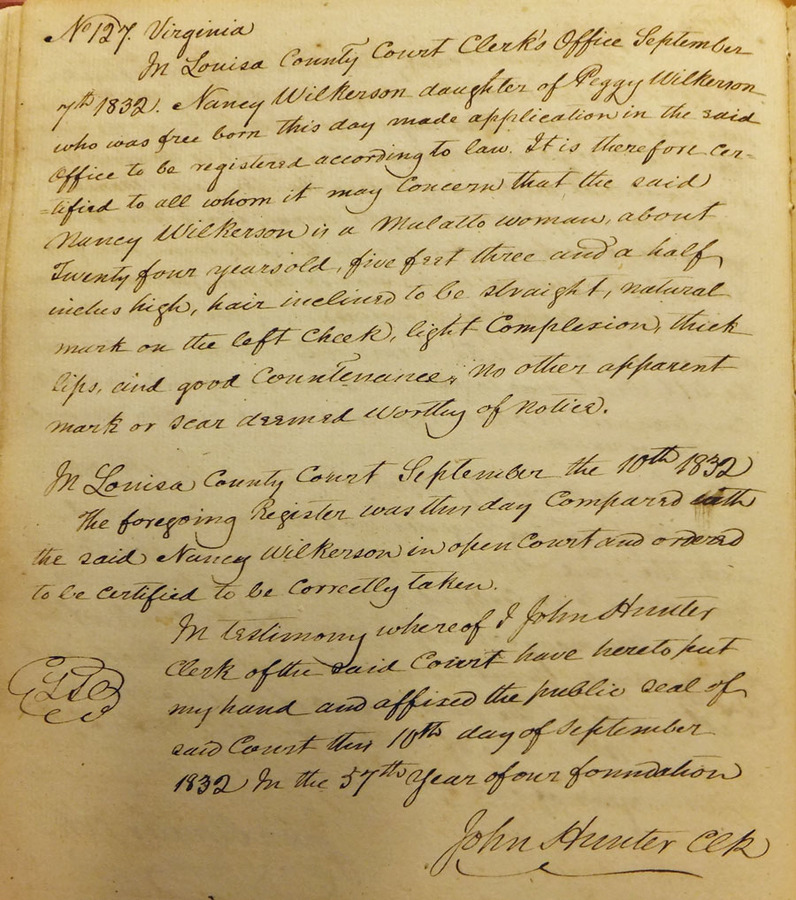 No 127. Virginia
In Louisa County Court Clerk's Office September
7th 1832. Nancy Wilkerson daughter of Peggy Wilkerson
who was free born this day made application in the said
Office to be registered according to law. It is therefore cer=
=tified to all whom it may Concern that the said
Nancy Wilkerson is a Mulatto woman, about
Twenty four years old, five feet three and a half
inches high, hair inclined to be straight, natural
mark on the left Cheek, light Complexion, thick
lips, and good Countenance; no other apparent
mark or scar deemed worthy of notice.
In Louisa County Court September the 10th 1832
The foregoing Register was this day Compared with
the said Nancy Wilkerson in open Court and ordered
to be certified to be Correctly taken.
In testimony whereof I John Hunter
Clerk of the said Court have hereto put
my hand and affixed the public seal of
said Court this 10th day of September
1832 In the 57th Year of our foundation
John Hunter Clk